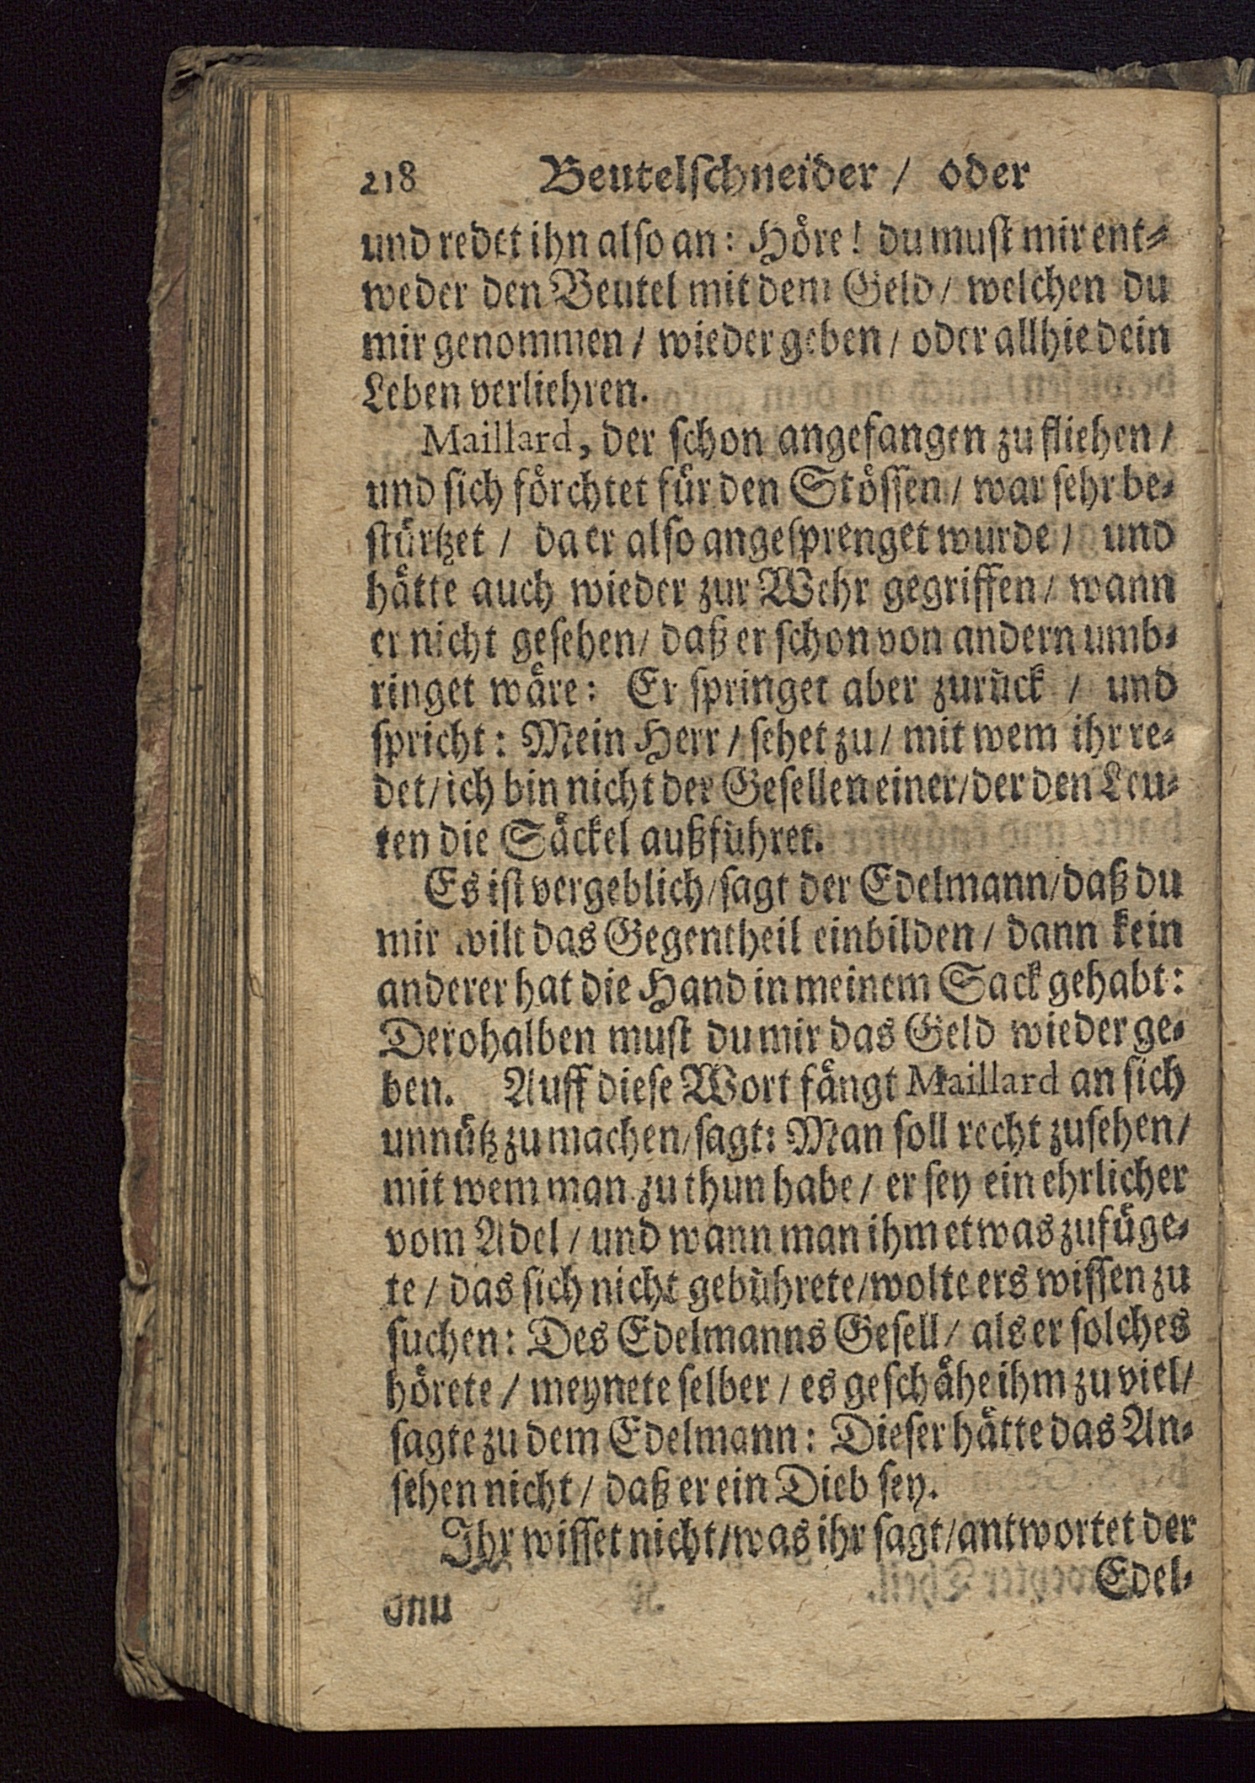 218 Beutelſchneider / oder
und redet ihn alſo an: Höre! du muſt mir ent⸗
weder den Beutel mit dem Geld / welchen du
mir genommen / wieder geben / oder allhie dein
Leben verliehren.
Maillard, der ſchon angefangen zu fliehen /
und ſich förchtet für den Stöſſen / war ſehr be⸗
ſtürtzet / da er alſo angeſprenget wurde / und
hätte auch wieder zur Wehr gegriffen / wann
er nicht geſehen / daß er ſchon von andern umb⸗
ringet wäre: Er ſpringet aber zurück / und
ſpricht: Mein Herr / ſehet zu / mit wem ihr re⸗
det / ich bin nicht der Geſellen einer / der den Leu⸗
ten die Säckel außführet.
Es iſt vergeblich / ſagt der Edelmann / daß du
mir wilt das Gegentheil einbilden / dann kein
anderer hat die Hand in meinem Sack gehabt:
Derohalben muſt du mir das Geld wieder ge⸗
ben. Auff dieſe Wort fängt Maillard an ſich
unnütz zu machen / ſagt: Man ſoll recht zuſehen /
mit wem man zu thun habe / er ſey ein ehrlicher
vom Adel / und wann man ihm etwas zufüge⸗
te / das ſich nicht gebührete / wolte ers wiſſen zu
ſuchen: Des Edelmanns Geſell / als er ſolches
hörete / meynete ſelber / es geſchähe ihm zu viel /
ſagte zu dem Edelmann: Dieſer hätte das An⸗
ſehen nicht / daß er ein Dieb ſey.
Ihr wiſſet nicht / was ihr ſagt / antwortet der
Edel⸗